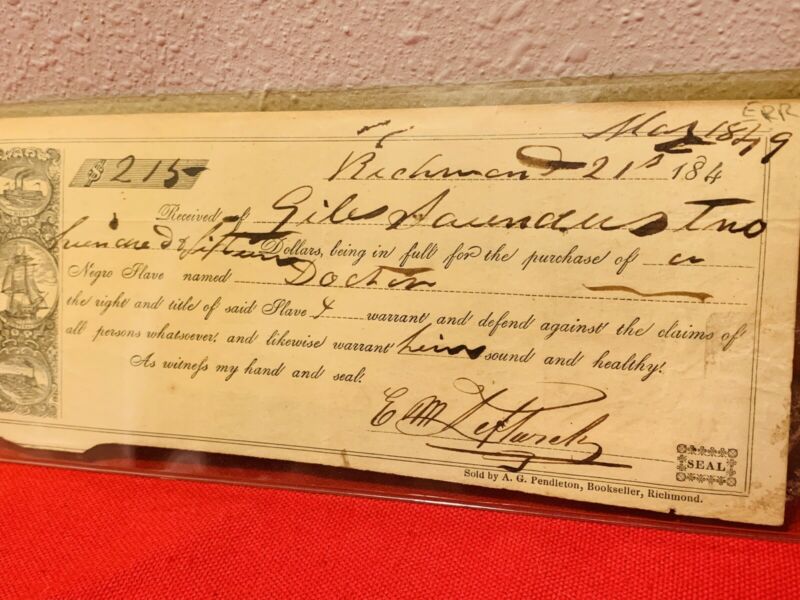 ERR
May 1849
$ 215 Richmond 21st 184
Received of Giles Saunders Two
hundred & fifteen Dollars, being in full for the purchase of a
Negro Slave named Doctor
the right and title of said Slave I warrant and defend against the claims of
all persons whatsoever, and likewise warrant him sound and healthy.
As witness my hand and seal.
E M
SEAL
Sold by A. G. Pendleton, Bookseller, Richmond.